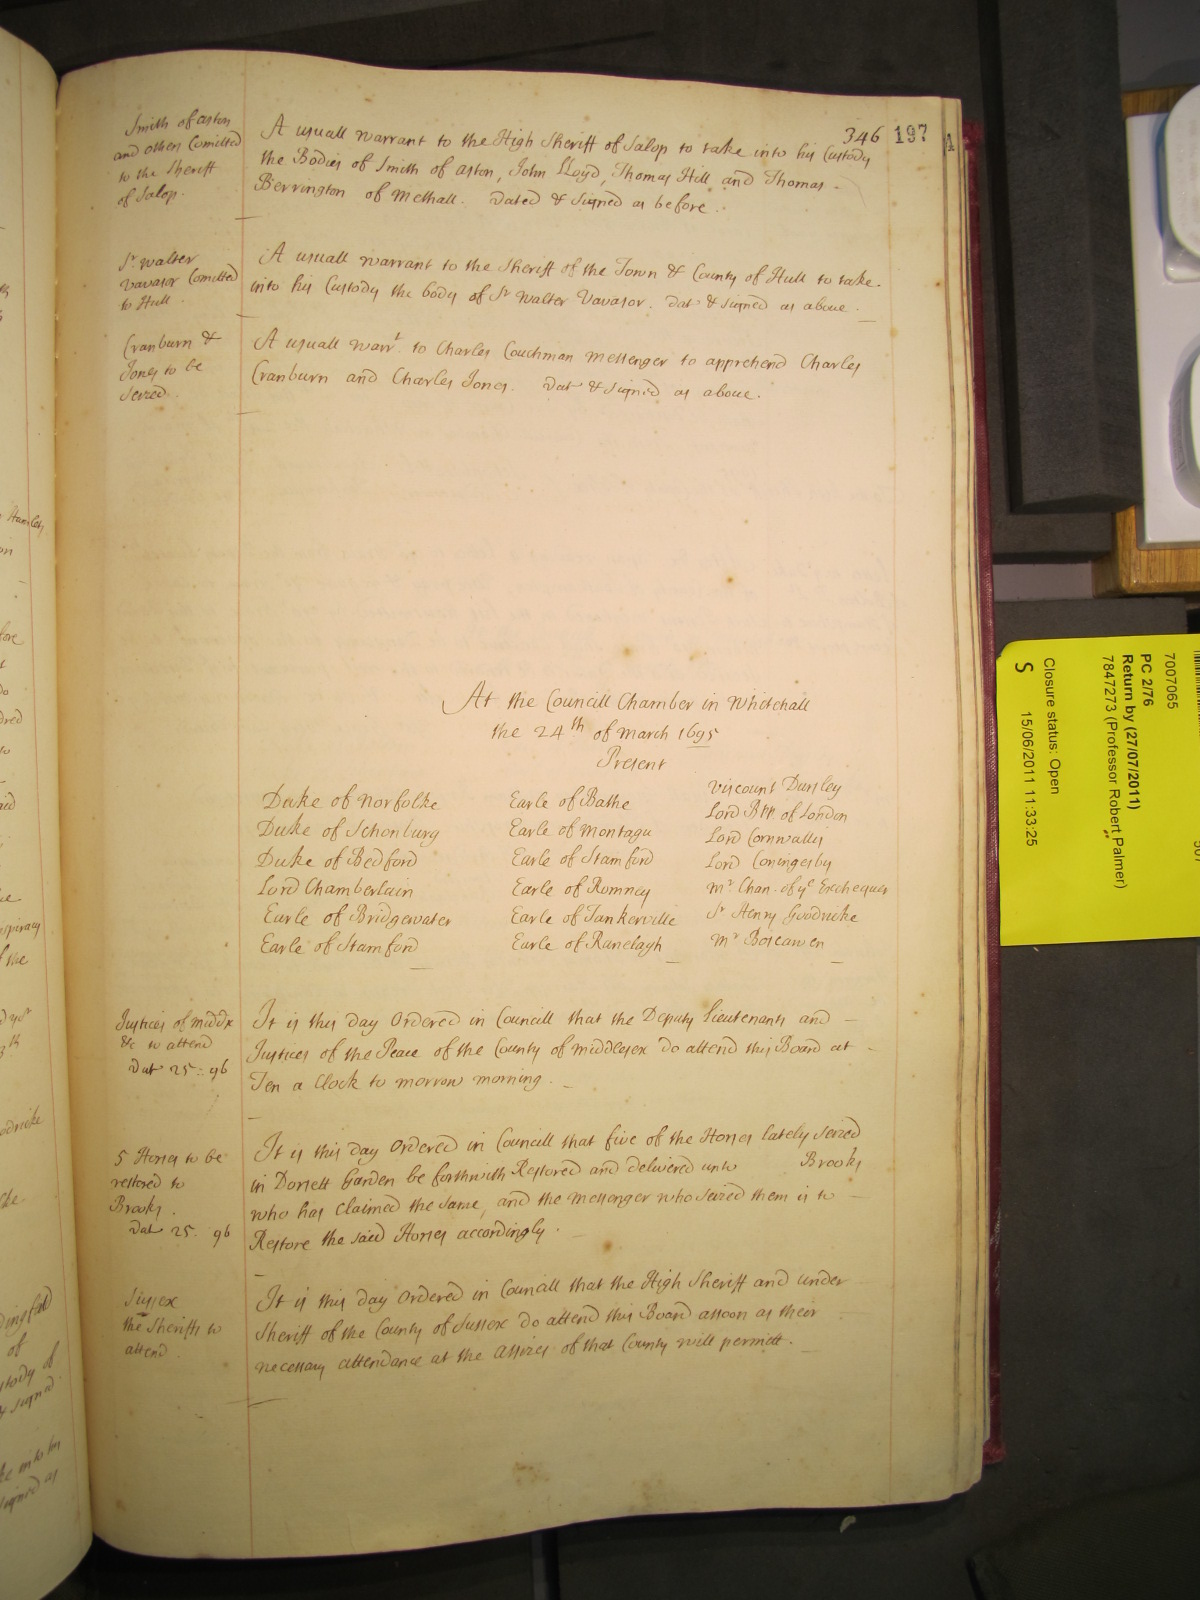 346 197 A
Smith of Aston
and others Comitted
to the Sheriff
of Salop.
A usuall warrant to the High Sheriff of Salop to take into his Custody
the Bodies of Smith of Aston, John Lloyd, Thomas Hill and Thomas
Berrington of Methall. Dated & Signed as before.
Sr. Walter
Vavasor Comitted
to Hull.
A usuall warrant to the Sheriff of the Town & County of Hull to take
into his Custody the body of Sr Walter Vavasor. Dat & Signed as above.
Cranburn &
Jones to be
Seized.
A usuall warrt. to Charles Couchman Messenger to apprehend Charles
Cranburn and Charles Jones. Dat & Signed as above.
At the Councill Chamber in Whitehall
the 24th of March 1695
Present
Duke of Norfolke
Duke of Schonburg
Duke of Bedford
Lord Chamberlain
Earle of Bridgewater
Earle of Stamford
Earle of Bathe
Earle of Montagu
Earle of Stamford
Earle of Romney
Earle of Tankerville
Earle of Ranelagh
Viscount Dursley
Lord Bpp. of London
Lord Cornwallis
Lord Coningesby
Mr. Chan. of ye Exchequer
Sr Henry Goodricke
Mr Boscawen
Justices of Middx
&c to attend
Dat 25: 96
It is this day Ordered in Councill that the Deputy Lieutenants and
Justices of the Peace of the County of Middlesex do attend this Board at
Ten a Clock to morrow morning.
5 Horses to be
restored to
Brooks.
Dat 25. 96
It is this day Ordered in Councill that five of the Horses lately seized
in Dorsett Garden be forthwith Restored and delivered unto Brooks
who has claimed the same, and the Messenger who seized them is to
Restore the said Horses accordingly.
Sussex
the Sheriffs to
attend.
It is this day Ordered in Councill that the High Sheriff and under
Sheriff of the County of Sussex do attend this Board assoon as their
necessary attendance at the Assizes of that County will permitt.
7007065
PC 2/76
Return by (27/07/2011)
7847273 (Professor Robert Palmer)
Closure status: Open
S 15/06/2011 11:33:25